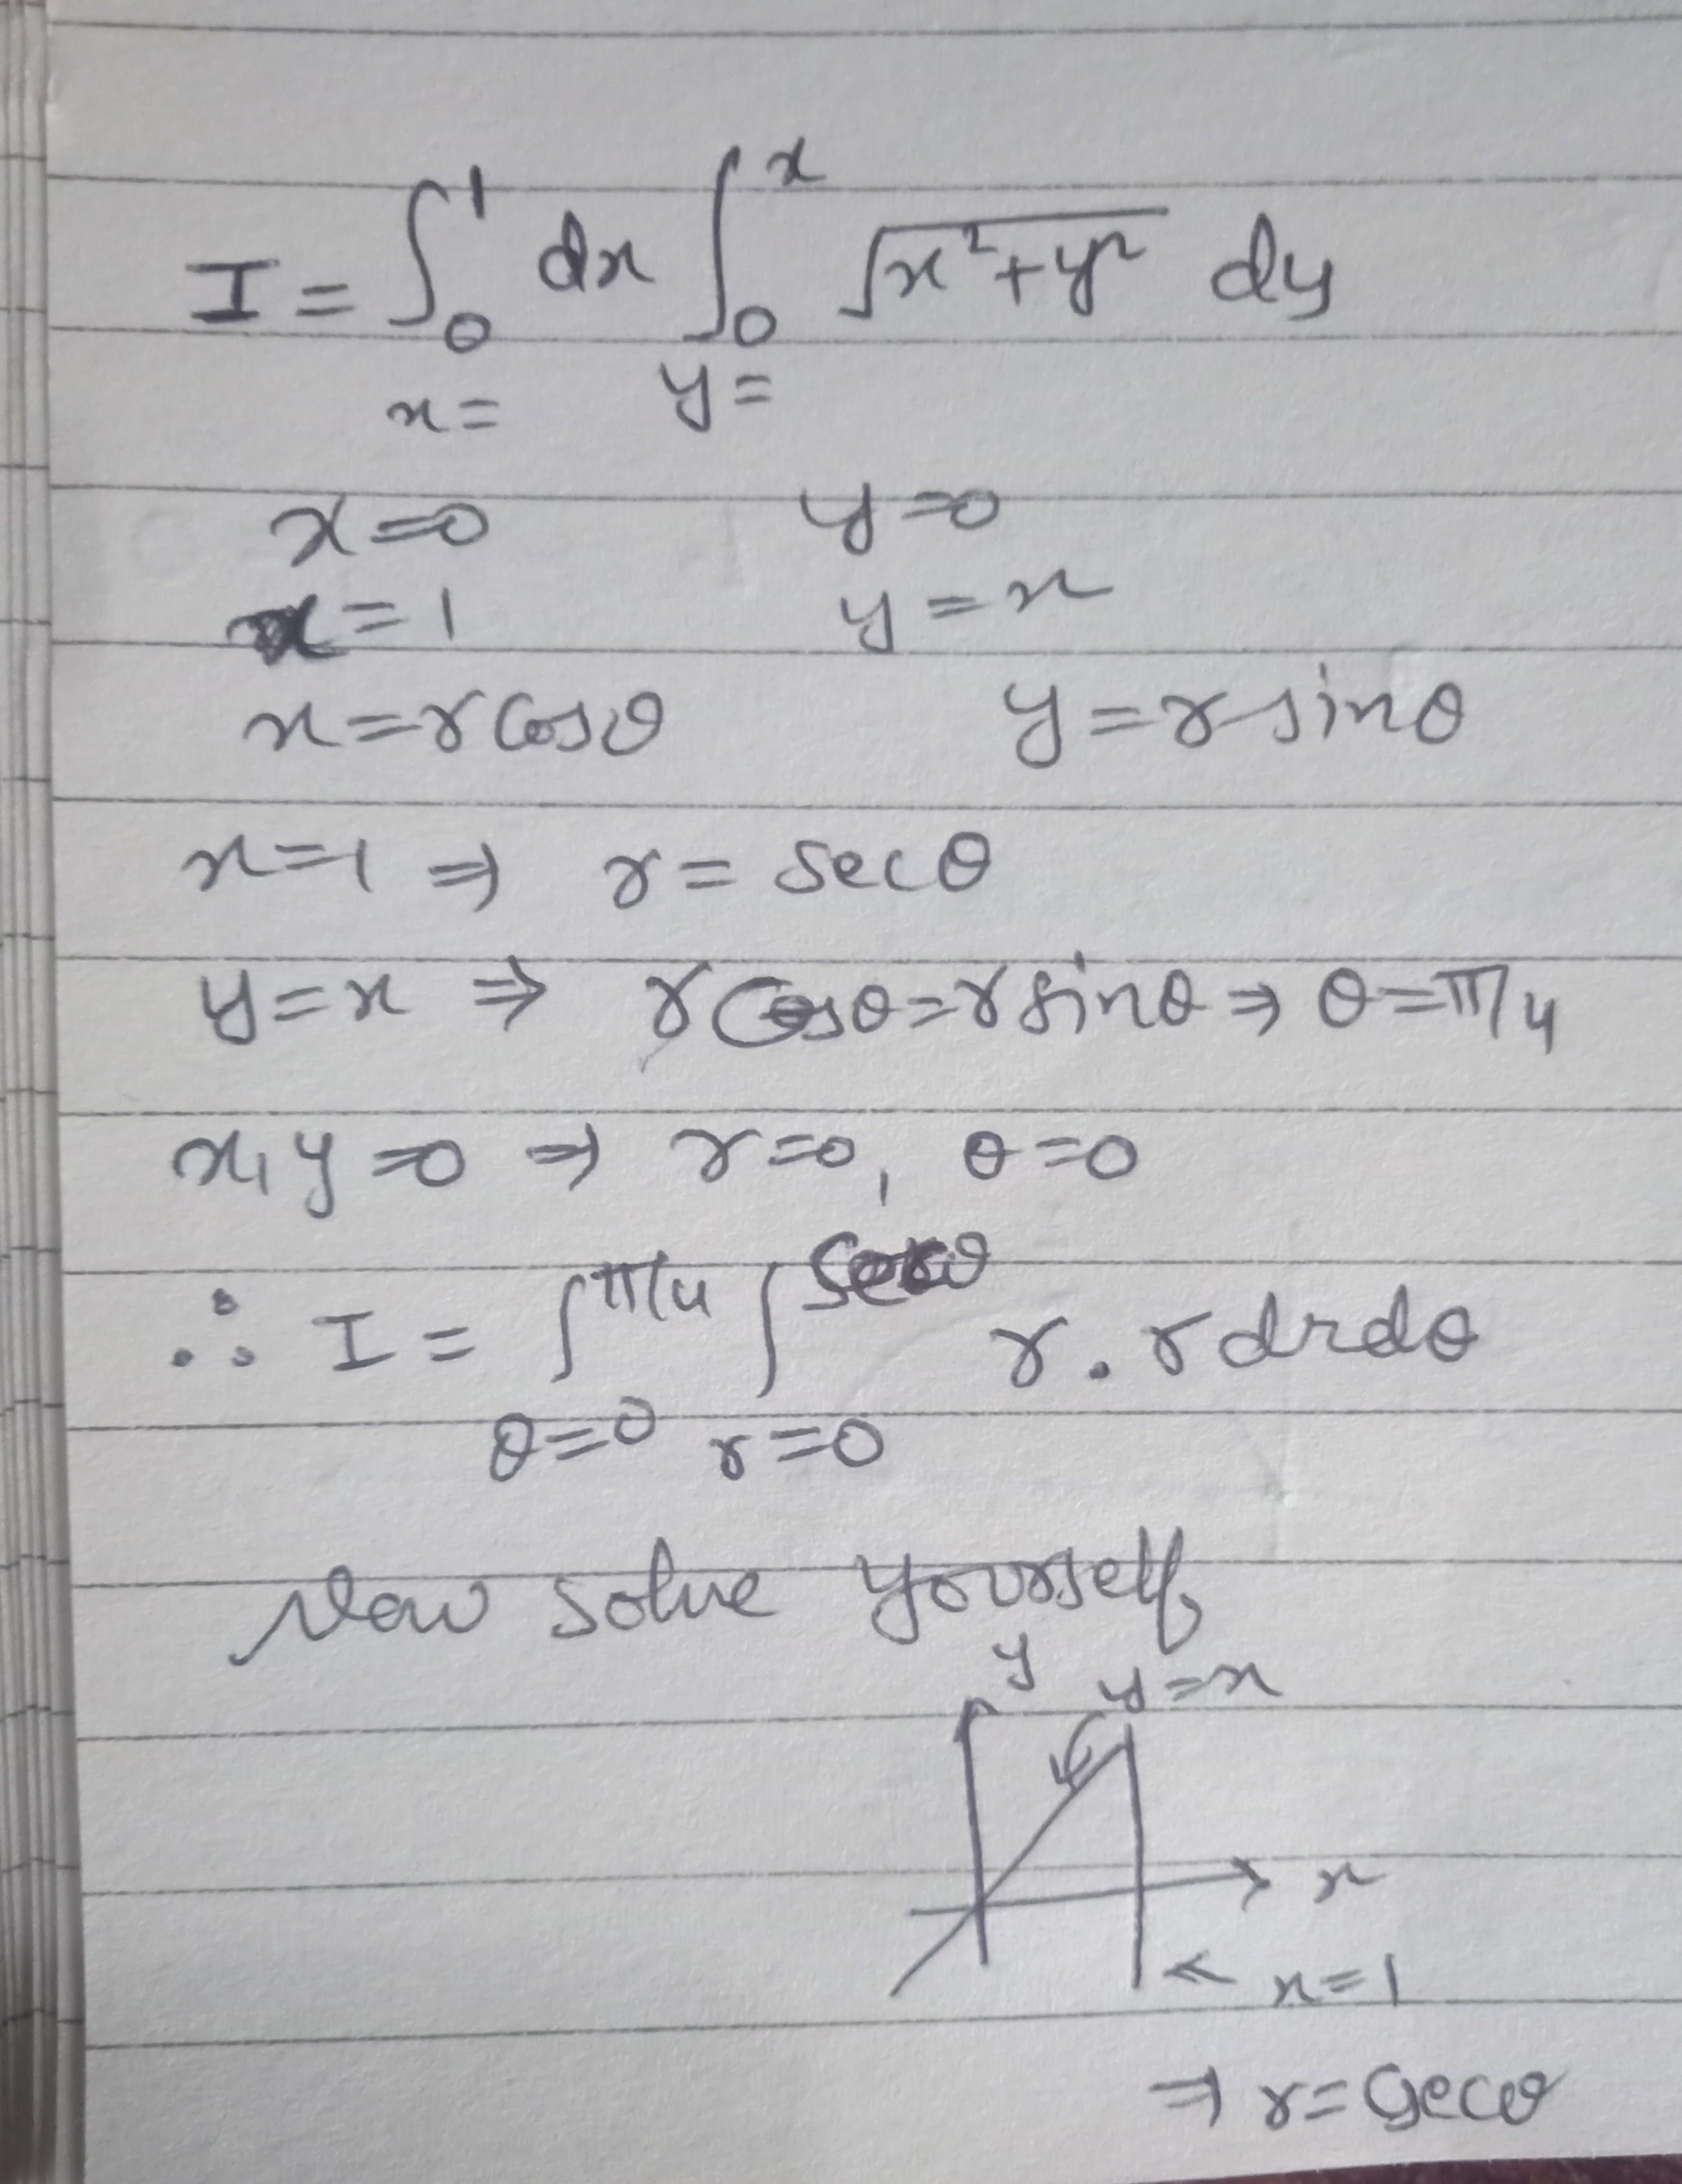 I = ∫₀¹ dx ∫₀ˣ √(x²+y²) dy
x= y=
x=0 y=0
x=1 y=x
x=r cosθ y=r sinθ
x=1 ⇒ r = secθ
y=x ⇒ r cosθ=r sinθ ⇒ θ=π/4
x,y=0 ⇒ r=0, θ=0
∴ I = ∫_{θ=0}^{π/4} ∫_{r=0}^{secθ} r . r dr dθ
Now solve yourself
y y=x
x
← x=1
⇒ r=secθ